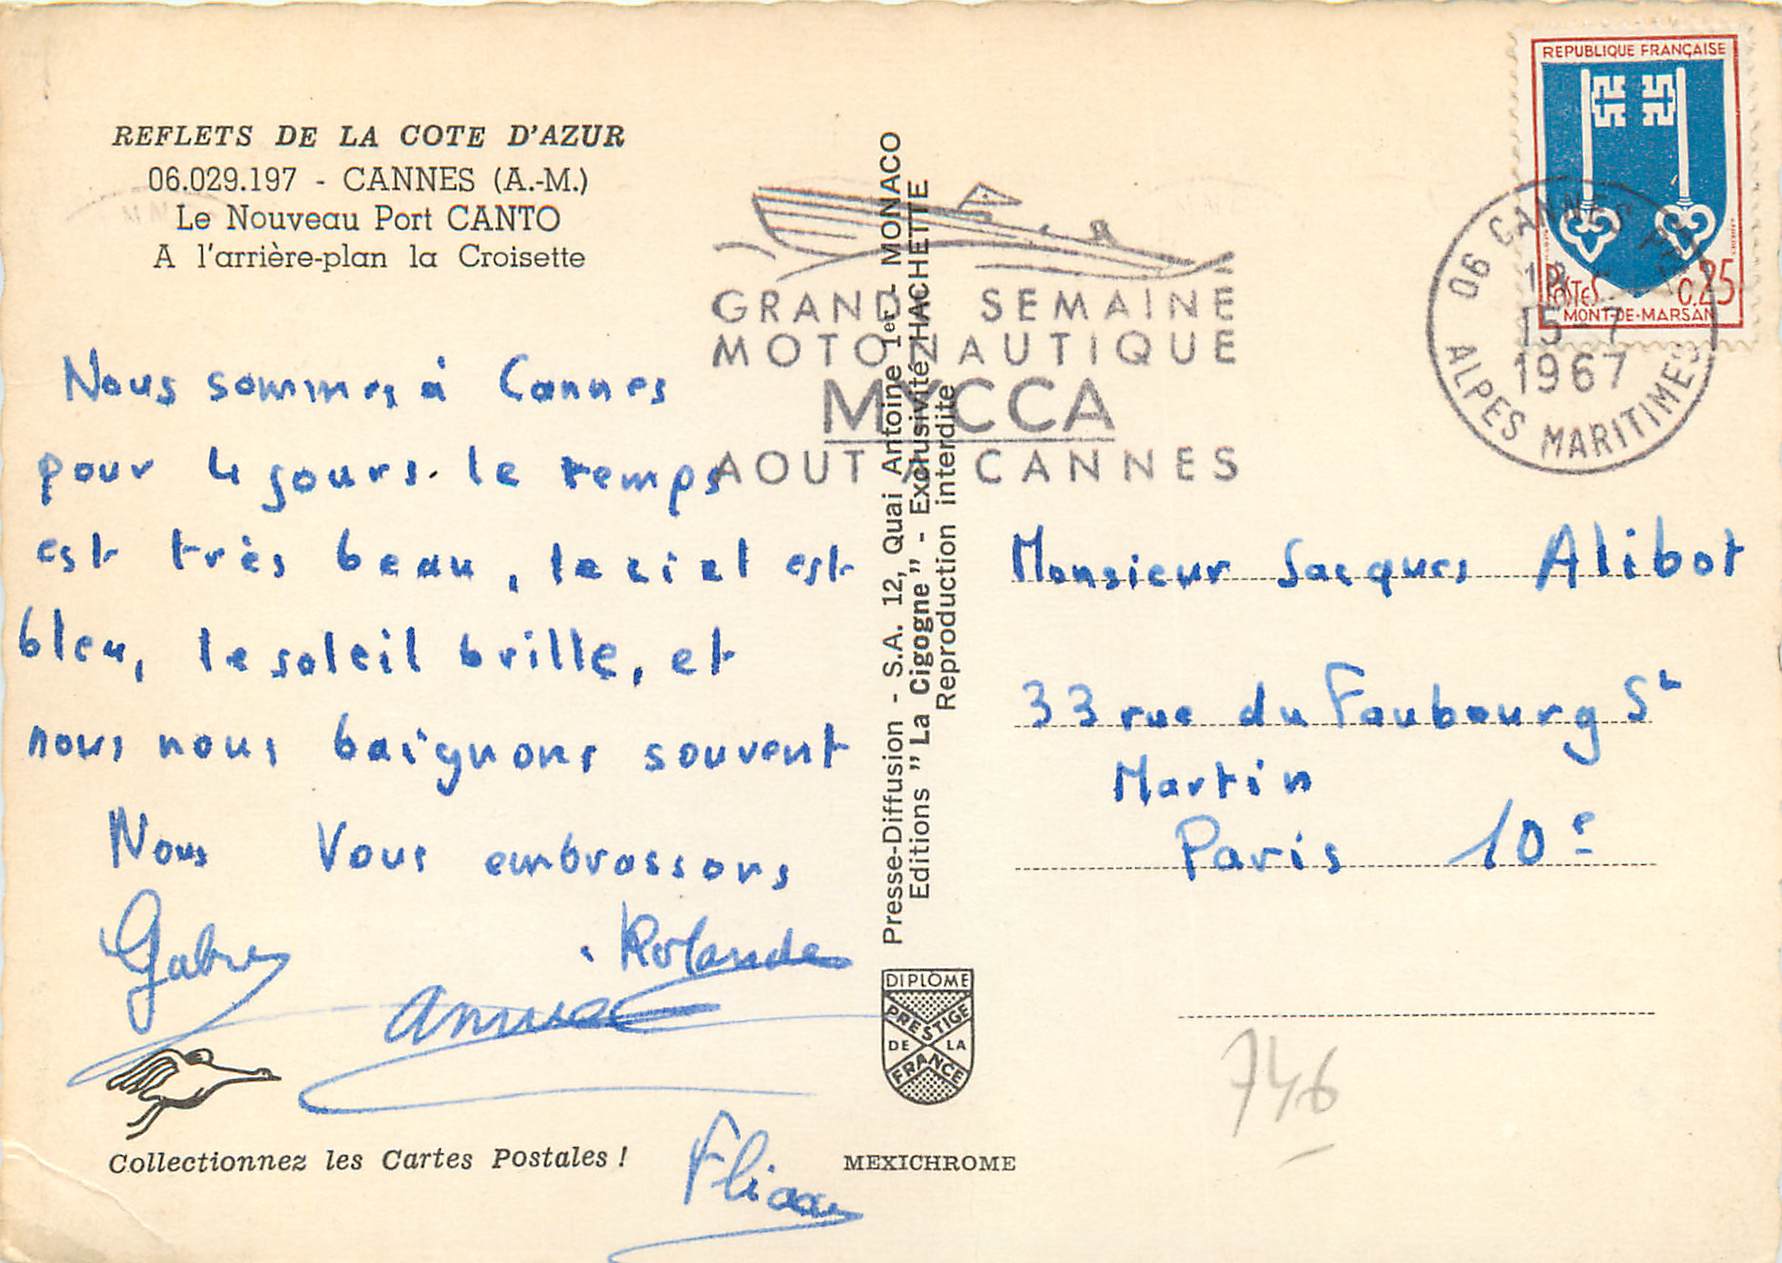 REFLETS DE LA COTE D'AZUR
06.029.197 - CANNES (A.-M.)
Le Nouveau Port CANTO
A l'arrière-plan la Croisette
Nous sommes à Cannes
pour 4 jours. le temps
est très beau, le ciel est
bleu, le soleil brille, et
nous nous baignons souvent
Nous Vous embrassons
Rolande
Collectionnez les Cartes Postales !
MEXICHROME
Presse-Diffusion - S.A. 12, Quai Antoine 1er - MONACO
Editions "La Cigogne" - Exclusivité HACHETTE
Reproduction interdite
DIPLOME
PRESTIGE
DE LA
FRANCE
GRANDE SEMAINE
MOTONAUTIQUE
MYCCA
AOUT CANNES
REPUBLIQUE FRANÇAISE
POSTES 0,25
MONT-DE-MARSAN
06 CANNES
15-7
1967
ALPES MARITIMES
Monsieur Jacques Alibot
33 rue du Faubourg St
Martin
Paris 10e
746